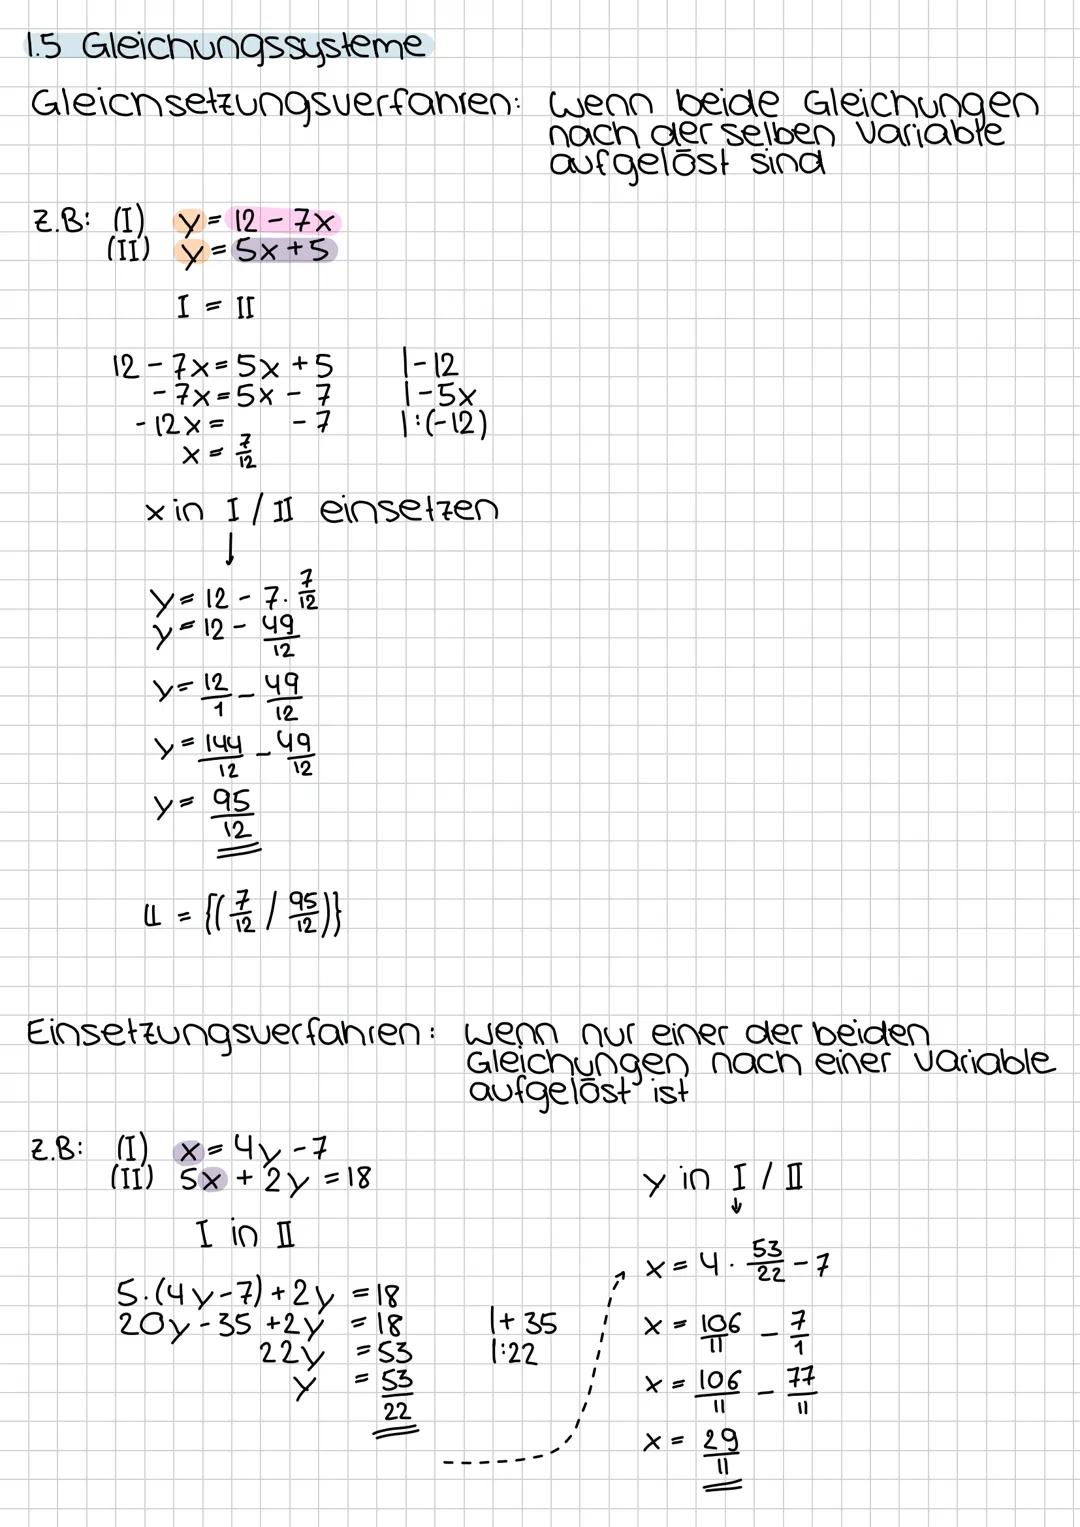 1.5 Gleichungssysteme
Gleichsetzungsverfahren: wenn beide Gleichungen
nach der selben Variable
aufgelöst sind
z.B: (I) y = 12 - 7x
(II) y = 5x + 5
I = II
12 - 7x = 5x + 5 |-12
- 7x = 5x - 7 |-5x
- 12x = - 7 |:(-12)
x = 7/12
x in I / II einsetzen
↓
y = 12 - 7 · 7/12
y = 12 - 49/12
y = 12/1 - 49/12
y = 144/12 - 49/12
y = 95/12
𝕃 = {(7/12 / 95/12)}
Einsetzungsverfahren: wenn nur einer der beiden
Gleichungen nach einer Variable
aufgelöst ist
z.B: (I) x = 4y - 7
(II) 5x + 2y = 18
I in II
5·(4y-7) + 2y = 18
20y - 35 + 2y = 18 |+ 35
22y = 53 |:22
y = 53/22
y in I / II
↓
x = 4 · 53/22 - 7
x = 106/11 - 7/1
x = 106/11 - 77/11
x = 29/11